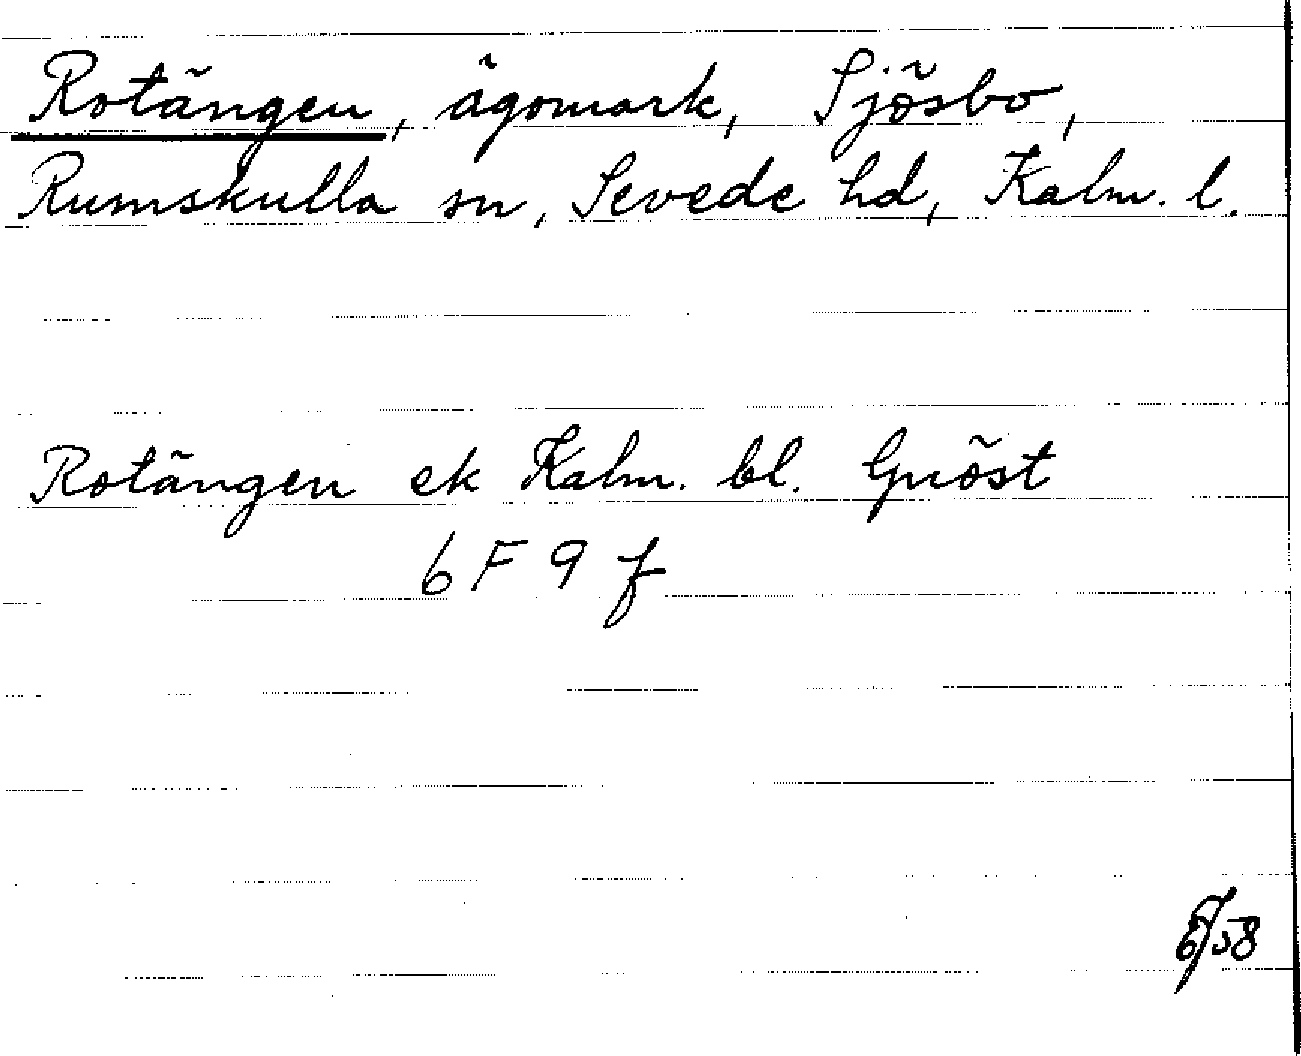 Rotängen, ägomark, Sjösbo,
Rumskulla sn, Sevede hd, Kalm. l.
Rotängen ek Kalm. bl. Gnöst
6 F 9 f